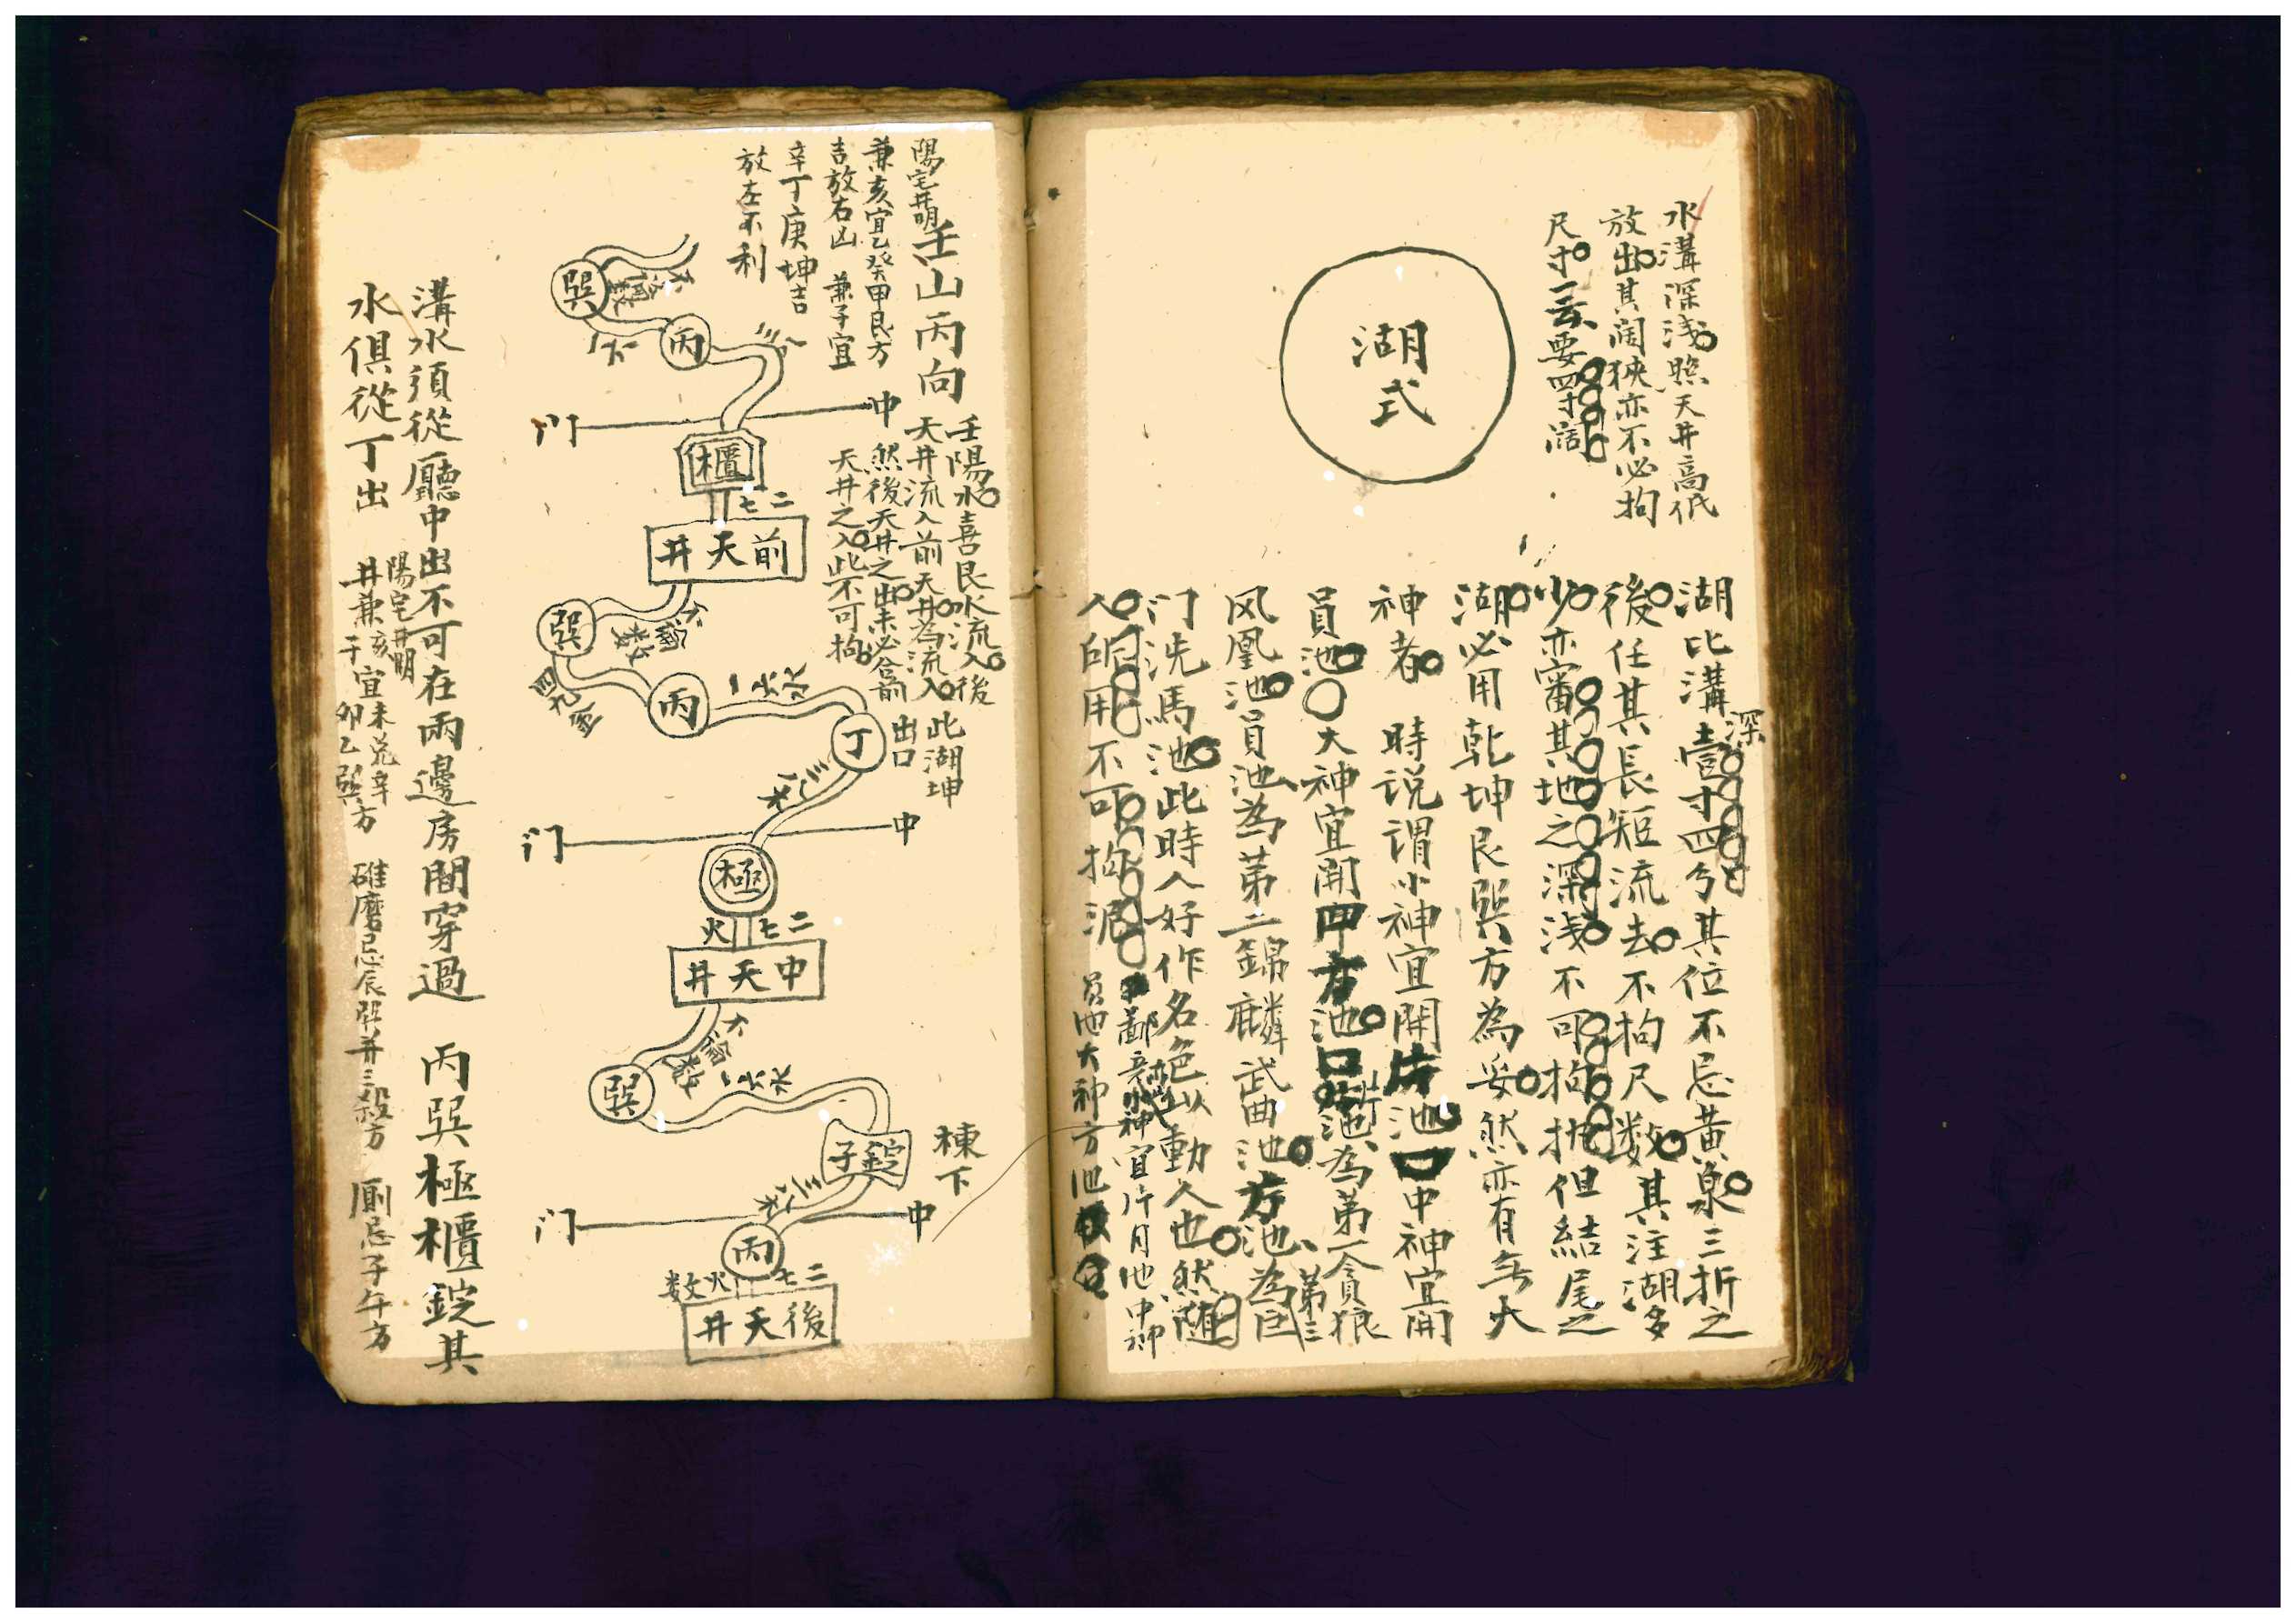 水溝深浅照天井高低
放出其闊狹亦不必拘
尺寸云要四寸濶
湖式
湖比溝深壹寸四分其位不忌黃泉三折之
後任其長短流去不拘尺数其注湖多
少亦審其地之深浅不可拘拋但結尾之
湖必用乾坤艮巽方為妥然亦有無大
神者時説謂小神宜開片池中神宜開
員池大神宜開方池片池為第一貪狼
风凰池員池為第二錦麟武曲池方池為第三巨
门洗馬池此時人好作名色以動人也然随
入所用不可拘泥
鄙意小神宜片月池中神
員池大神方池
陽宅井明
壬山丙向
兼亥宜乙癸甲艮方
吉放右凶 兼子宜
辛丁庚坤吉
放左不利
壬陽水喜艮水流入後
天井流入前天井為流入
然後天井之出未必合前
天井之入此不可拘
此湖坤
出口
巽
丙
三八
门 中
櫃
二七
前天井
巽
六
四九金
丙
一六水
丁
三八木
门 中
極
二七火
中天井
六
巽
一六水
錠子
棟下
三八木
门 中
丙
二七火数
後天井
溝水須從廳中出不可在兩邊房間穿過 丙巽極櫃錠其
水俱從丁出
陽宅井明
井兼亥宜未兑辛
子卯乙巽方
碓磨忌辰巽并三殺方 厠忌子午方